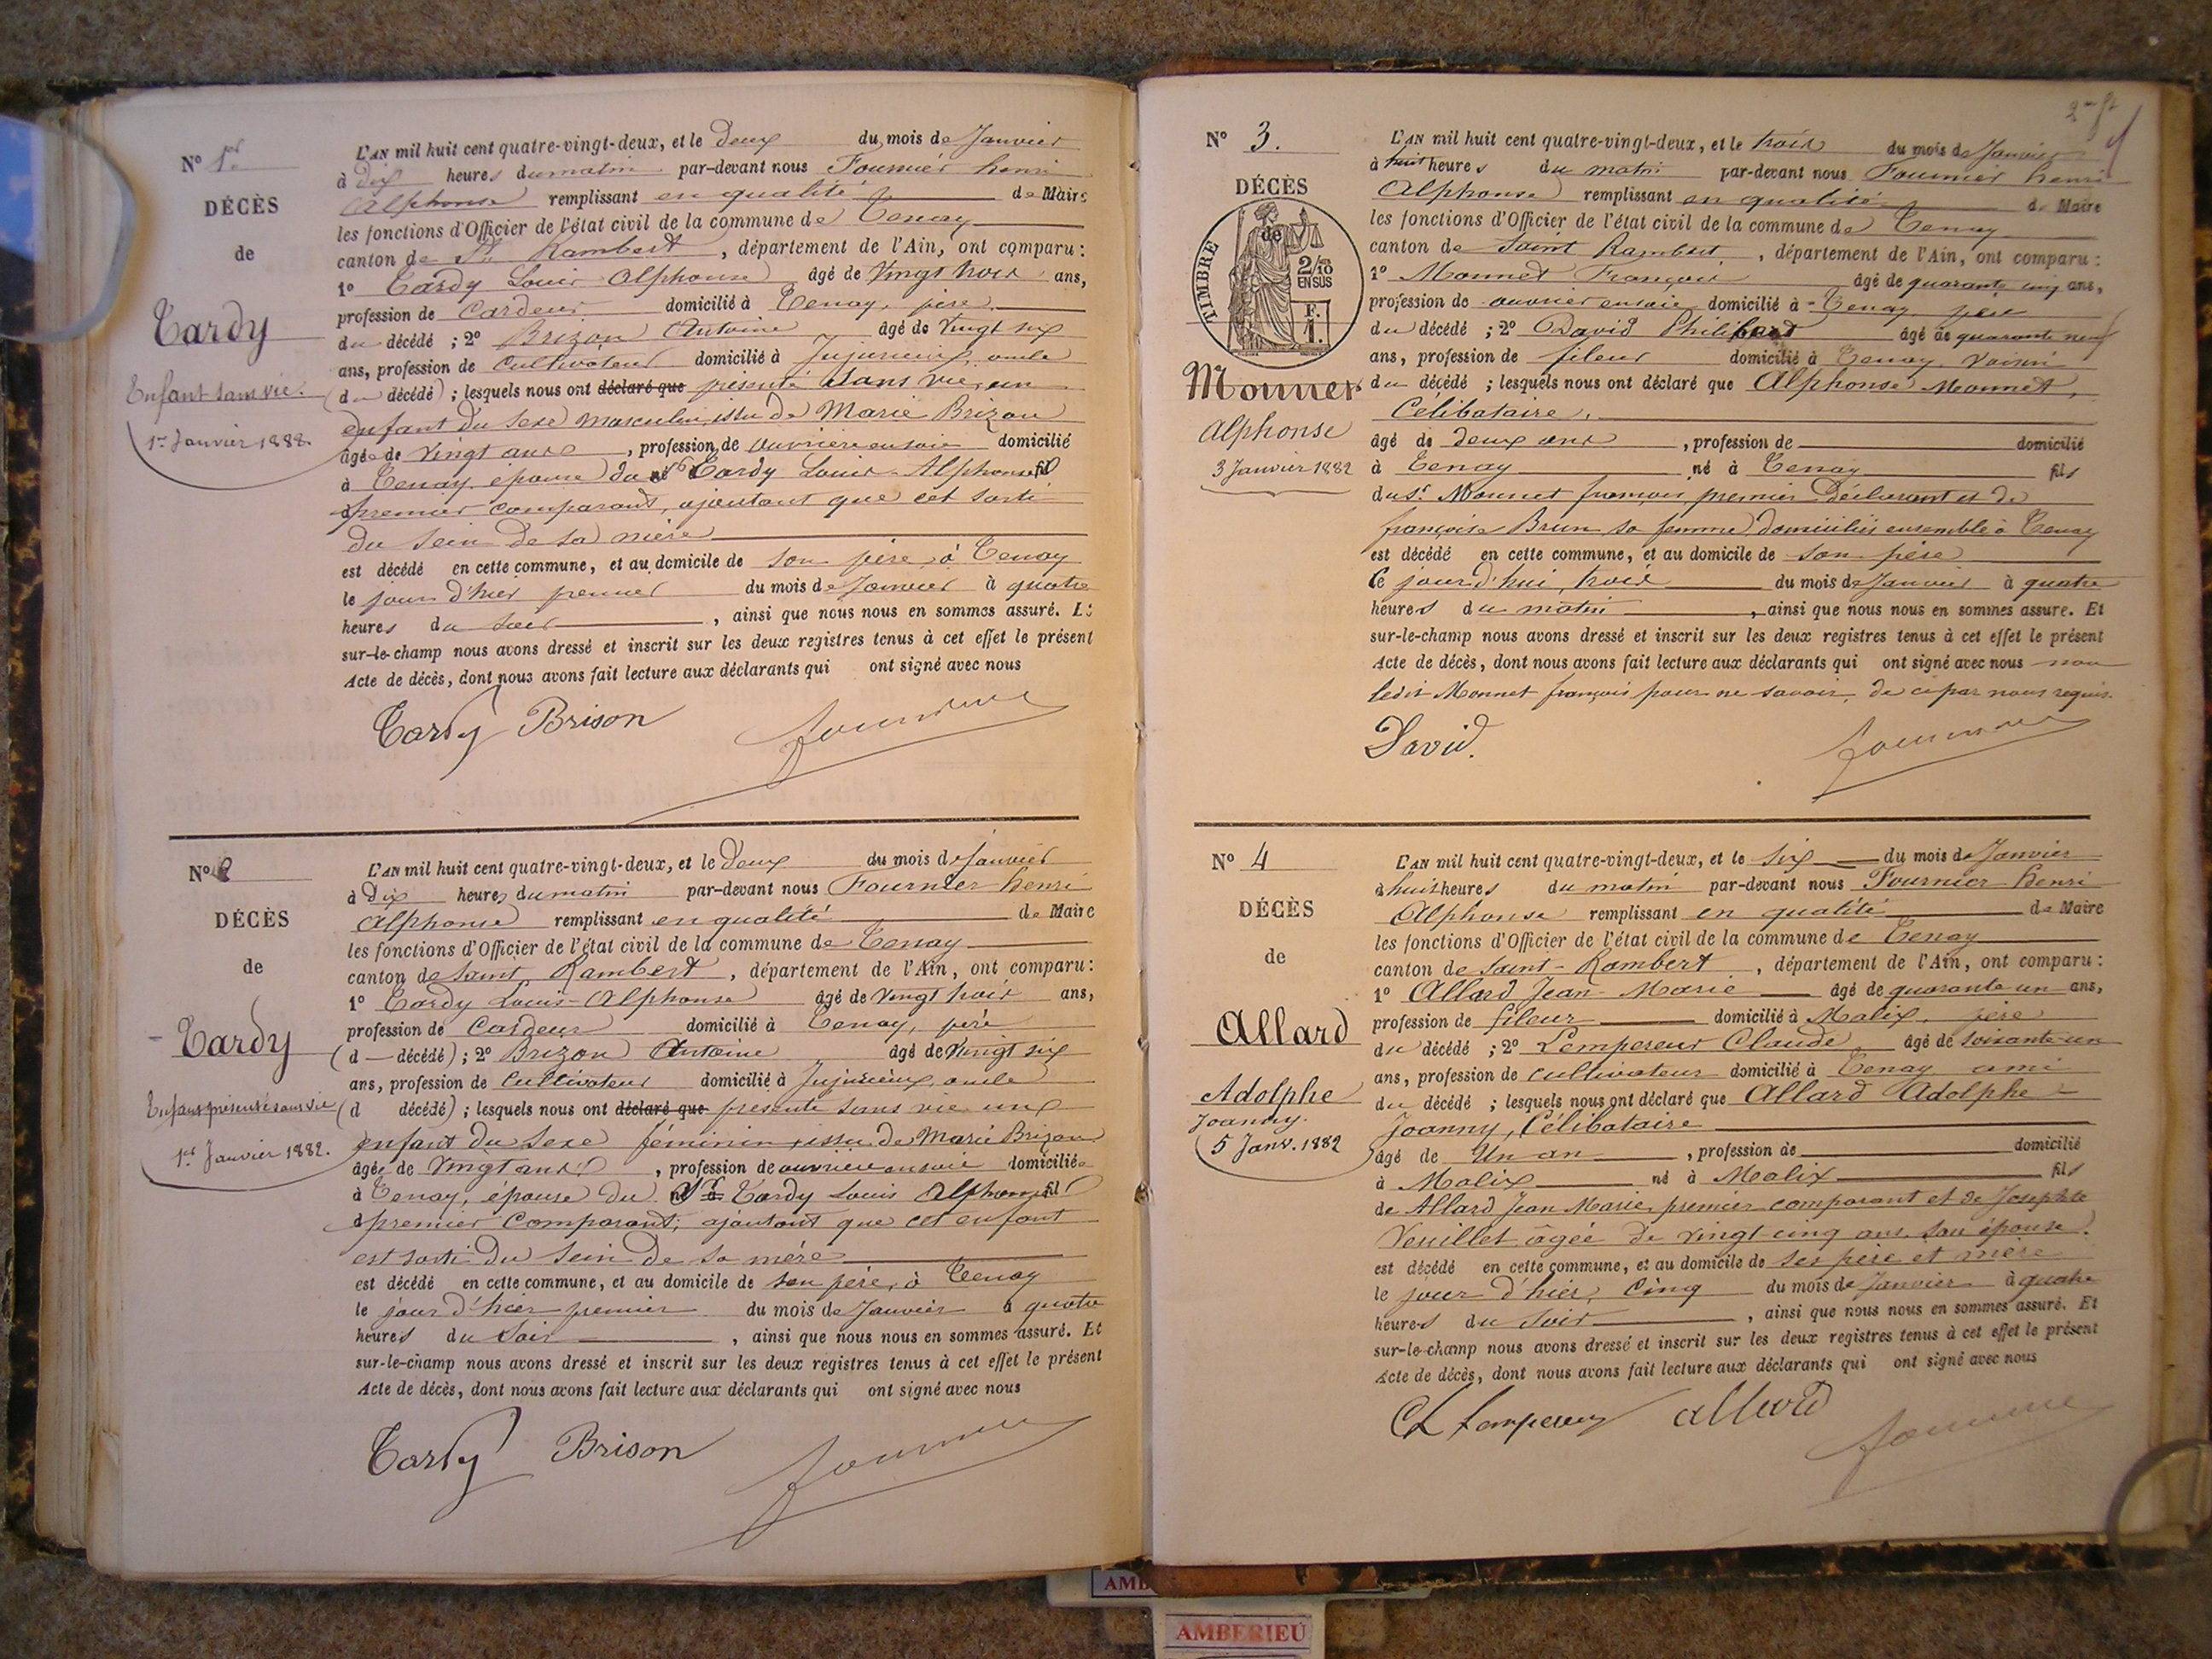 N° 1er
DÉCÈS
de
Tardy
Enfant sans vie.
1er Janvier 1882.
L'AN mil huit cent quatre-vingt-deux, et le deux du mois de Janvier
à dix heures du matin par-devant nous Fournier henri
Alphonse remplissant en qualité de Maire
les fonctions d'Officier de l'état civil de la commune de Tenay
canton de St Rambert, département de l'Ain, ont comparu :
1° Tardy Louis Alphonse âgé de Vingt trois ans,
profession de Cardeur domicilié à Tenay, père
du décédé ; 2° Brizon Antoine âgé de Vingt six
ans, profession de Cultivateur domicilié à Jujurieux, oncle
(du décédé) ; lesquels nous ont déclaré que présenté sans vie, un
enfant du sexe masculin, issu de Marie Brizon
âgée de Vingt ans, profession de ouvrière en soie domicilié
à Tenay, épouse du né à Tardy Louis Alphonse fil
premier comparant, ajoutant que cet sorti
du sein de sa mère
est décédé en cette commune, et au domicile de son père, à Tenay
le jour d'hier premier du mois de Janvier à quatre
heures du soir, ainsi que nous nous en sommes assuré. Et
sur-le-champ nous avons dressé et inscrit sur les deux registres tenus à cet effet le présent
Acte de décès, dont nous avons fait lecture aux déclarants qui ont signé avec nous
Tardy Brison Fournier
N° 2
DÉCÈS
de
Tardy
Enfant présenté sans vie
1er Janvier 1882.
L'AN mil huit cent quatre-vingt-deux, et le deux du mois de Janvier
à Dix heures du matin par-devant nous Fournier henri
Alphonse remplissant en qualité de Maire
les fonctions d'Officier de l'état civil de la commune de Tenay
canton de saint Rambert, département de l'Ain, ont comparu :
1° Tardy Louis-Alphonse âgé de Vingt trois ans,
profession de Cardeur domicilié à Tenay, père
(d décédé) ; 2° Brizon Antoine âgé de Vingt six
ans, profession de Cultivateur domicilié à Jujurieux, oncle
(d décédé) ; lesquels nous ont déclaré que présenté sans vie un
enfant du sexe féminin, issu de Marie Brizon
âgée de Vingt ans, profession de ouvrière en soie domiciliée
à Tenay, épouse du né à Sr Tardy Louis Alphonse fil
premier Comparant, ajoutant que cet enfant
est sorti du sein de sa mère
est décédé en cette commune, et au domicile de son père, à Tenay
le jour d'hier premier du mois de Janvier à quatre
heures du soir, ainsi que nous nous en sommes assuré. Et
sur-le-champ nous avons dressé et inscrit sur les deux registres tenus à cet effet le présent
Acte de décès, dont nous avons fait lecture aux déclarants qui ont signé avec nous
Tardy Brison Fournier
N° 3.
DÉCÈS
de
TIMBRE
2/10
EN SUS
F.
1.
Monnet
Alphonse
3 Janvier 1882
L'AN mil huit cent quatre-vingt-deux, et le trois du mois de Janvier
à huit heures du matin par-devant nous Fournier henri
Alphonse remplissant en qualité de Maire
les fonctions d'Officier de l'état civil de la commune de Tenay
canton de Saint Rambert, département de l'Ain, ont comparu :
1° Monnet François âgé de quarante cinq ans,
profession de ouvrier en soie domicilié à Tenay père
du décédé ; 2° David Philibert âgé de quarante neuf
ans, profession de fileur domicilié à Tenay Voisin
du décédé ; lesquels nous ont déclaré que Alphonse Monnet,
Célibataire,
âgé de deux ans, profession de domicilié
à Tenay né à Tenay fils
du Sr. Monnet françois premier Déclarant et de
françoise Brun sa femme domiciliés ensemble à Tenay
est décédé en cette commune, et au domicile de son père
le jour d'hui, trois du mois de Janvier à quatre
heures du matin, ainsi que nous nous en sommes assuré. Et
sur-le-champ nous avons dressé et inscrit sur les deux registres tenus à cet effet le présent
Acte de décès, dont nous avons fait lecture aux déclarants qui ont signé avec nous non
ledit Monnet françois pour ne savoir, de ce par nous requis.
David. Fournier
N° 4
DÉCÈS
de
Allard
Adolphe
Joanny.
5 Janv. 1882
L'AN mil huit cent quatre-vingt-deux, et le six du mois de Janvier
à huit heures du matin par-devant nous Fournier henri
Alphonse remplissant en qualité de Maire
les fonctions d'Officier de l'état civil de la commune de Tenay
canton de Saint-Rambert, département de l'Ain, ont comparu :
1° Allard Jean-Marie âgé de quarante un ans,
profession de fileur domicilié à Malix, père
du décédé ; 2° Lempereur Claude âgé de soixante un
ans, profession de cultivateur domicilié à Tenay ami
du décédé ; lesquels nous ont déclaré que Allard Adolphe
Joanny, Célibataire
âgé de Un an, profession de domicilié
à Malix né à Malix fils
de Allard Jean Marie, premier comparant et de Josephte
Veuillet âgée de vingt cinq ans, son épouse.
est décédé en cette commune, et au domicile de ses père et mère
le jour d'hier, Cinq du mois de Janvier à quatre
heures du soir, ainsi que nous nous en sommes assuré. Et
sur-le-champ nous avons dressé et inscrit sur les deux registres tenus à cet effet le présent
Acte de décès, dont nous avons fait lecture aux déclarants qui ont signé avec nous
Cl Lempereur allard Fournier
AMB
AMBERIEU